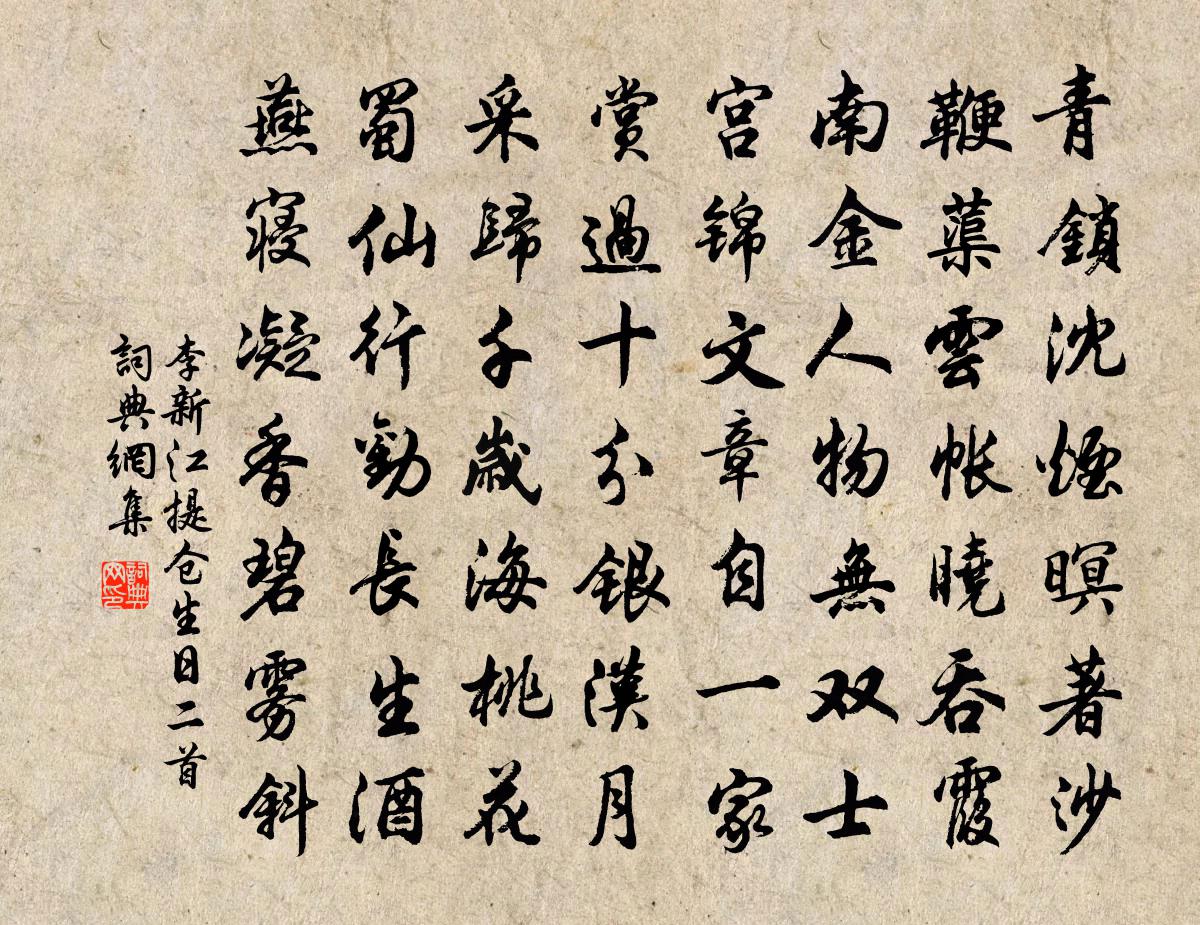 青鎖沈煙暝著沙
鞭蕖雲帳曉吞霞
南金人物無双士
宮锦文章自一家
賞過十分銀漢月
采歸千歲海桃花
蜀仙行勸長生酒
燕寢凝香碧雾斜
李新江提仓生日二首
詞典網集